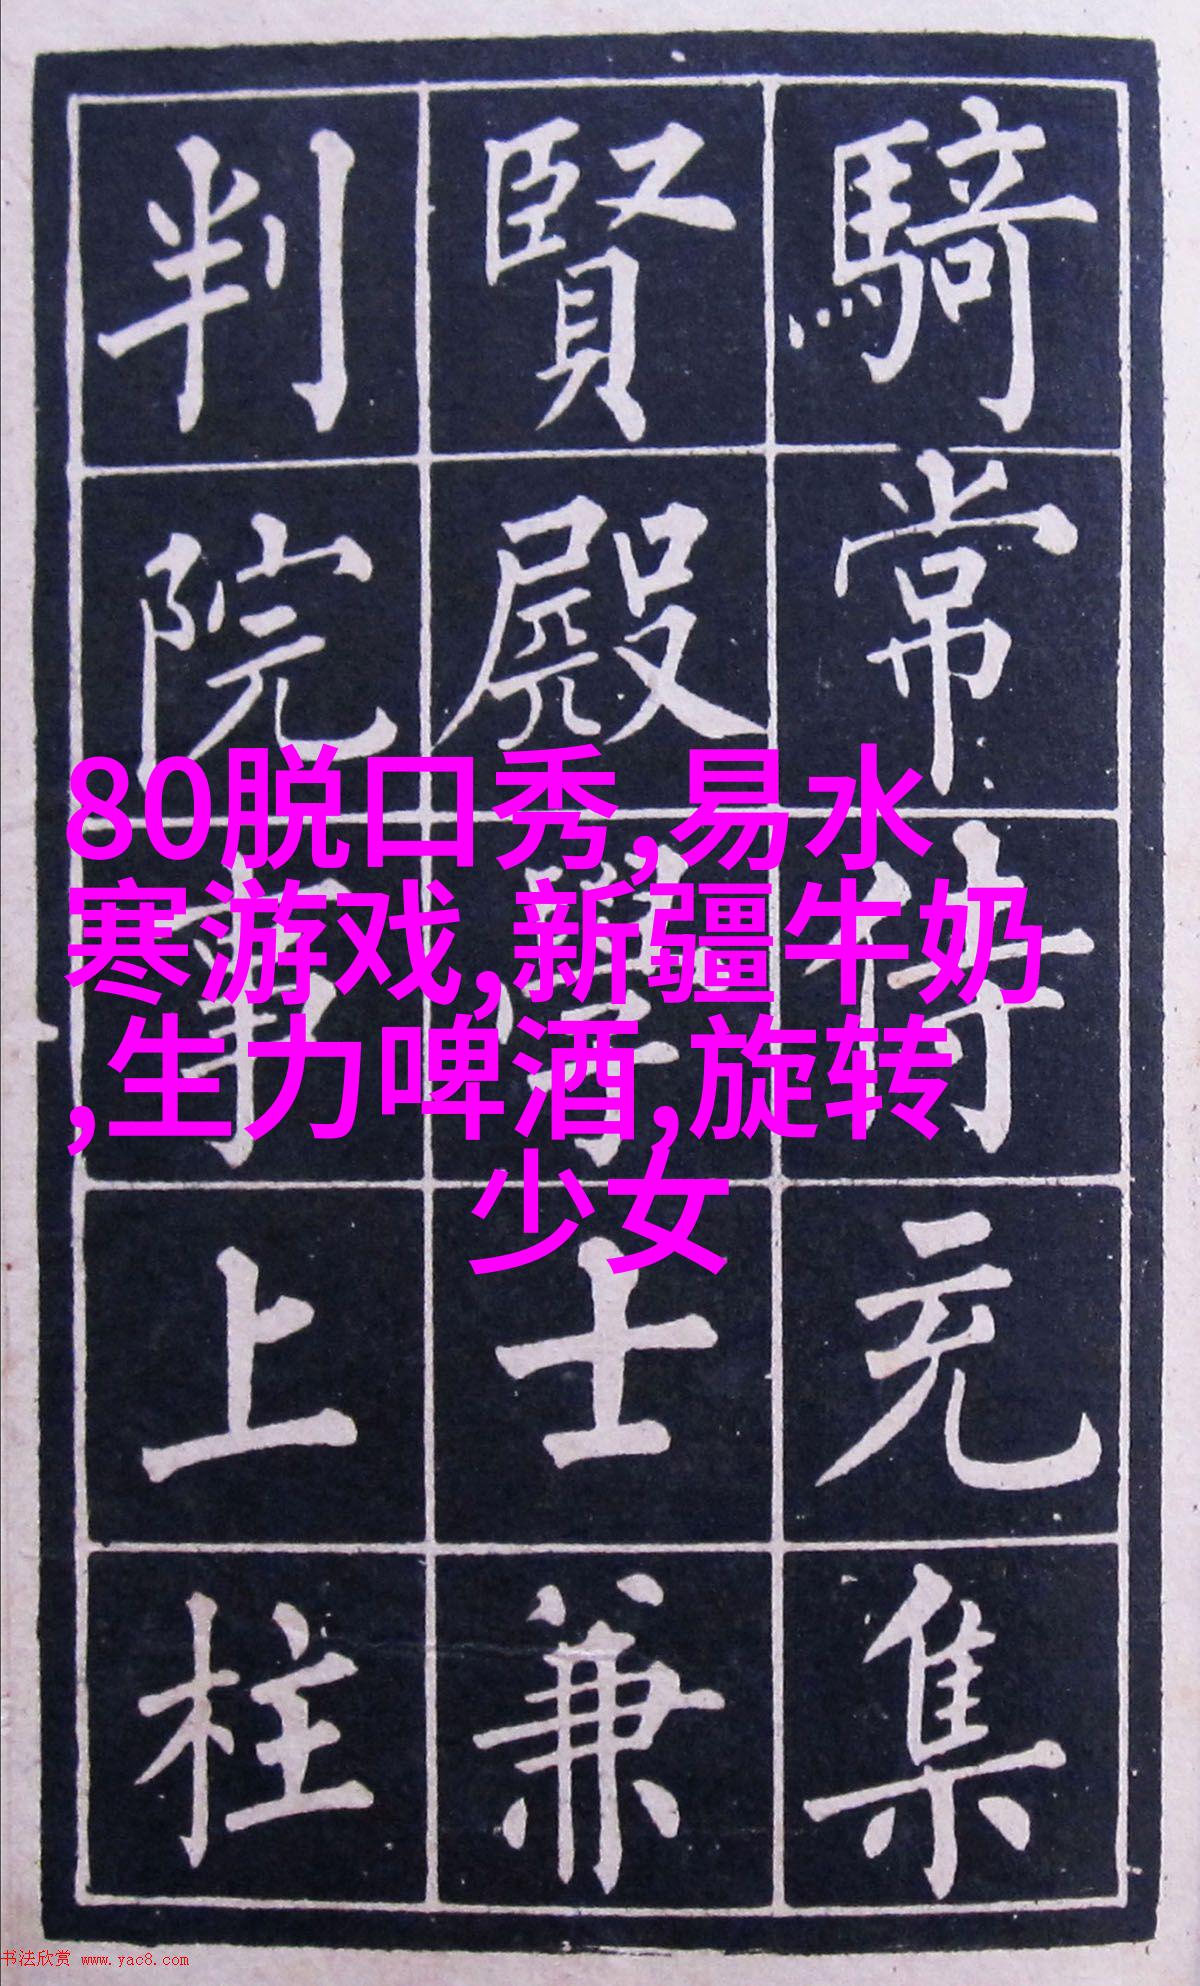 騎常侍充集
賢殿學士兼
判院事上柱
80脱口秀,易水
寒游戏,新疆牛奶
,生力啤酒,旋转
少女
书法欣赏 www.yac8.com